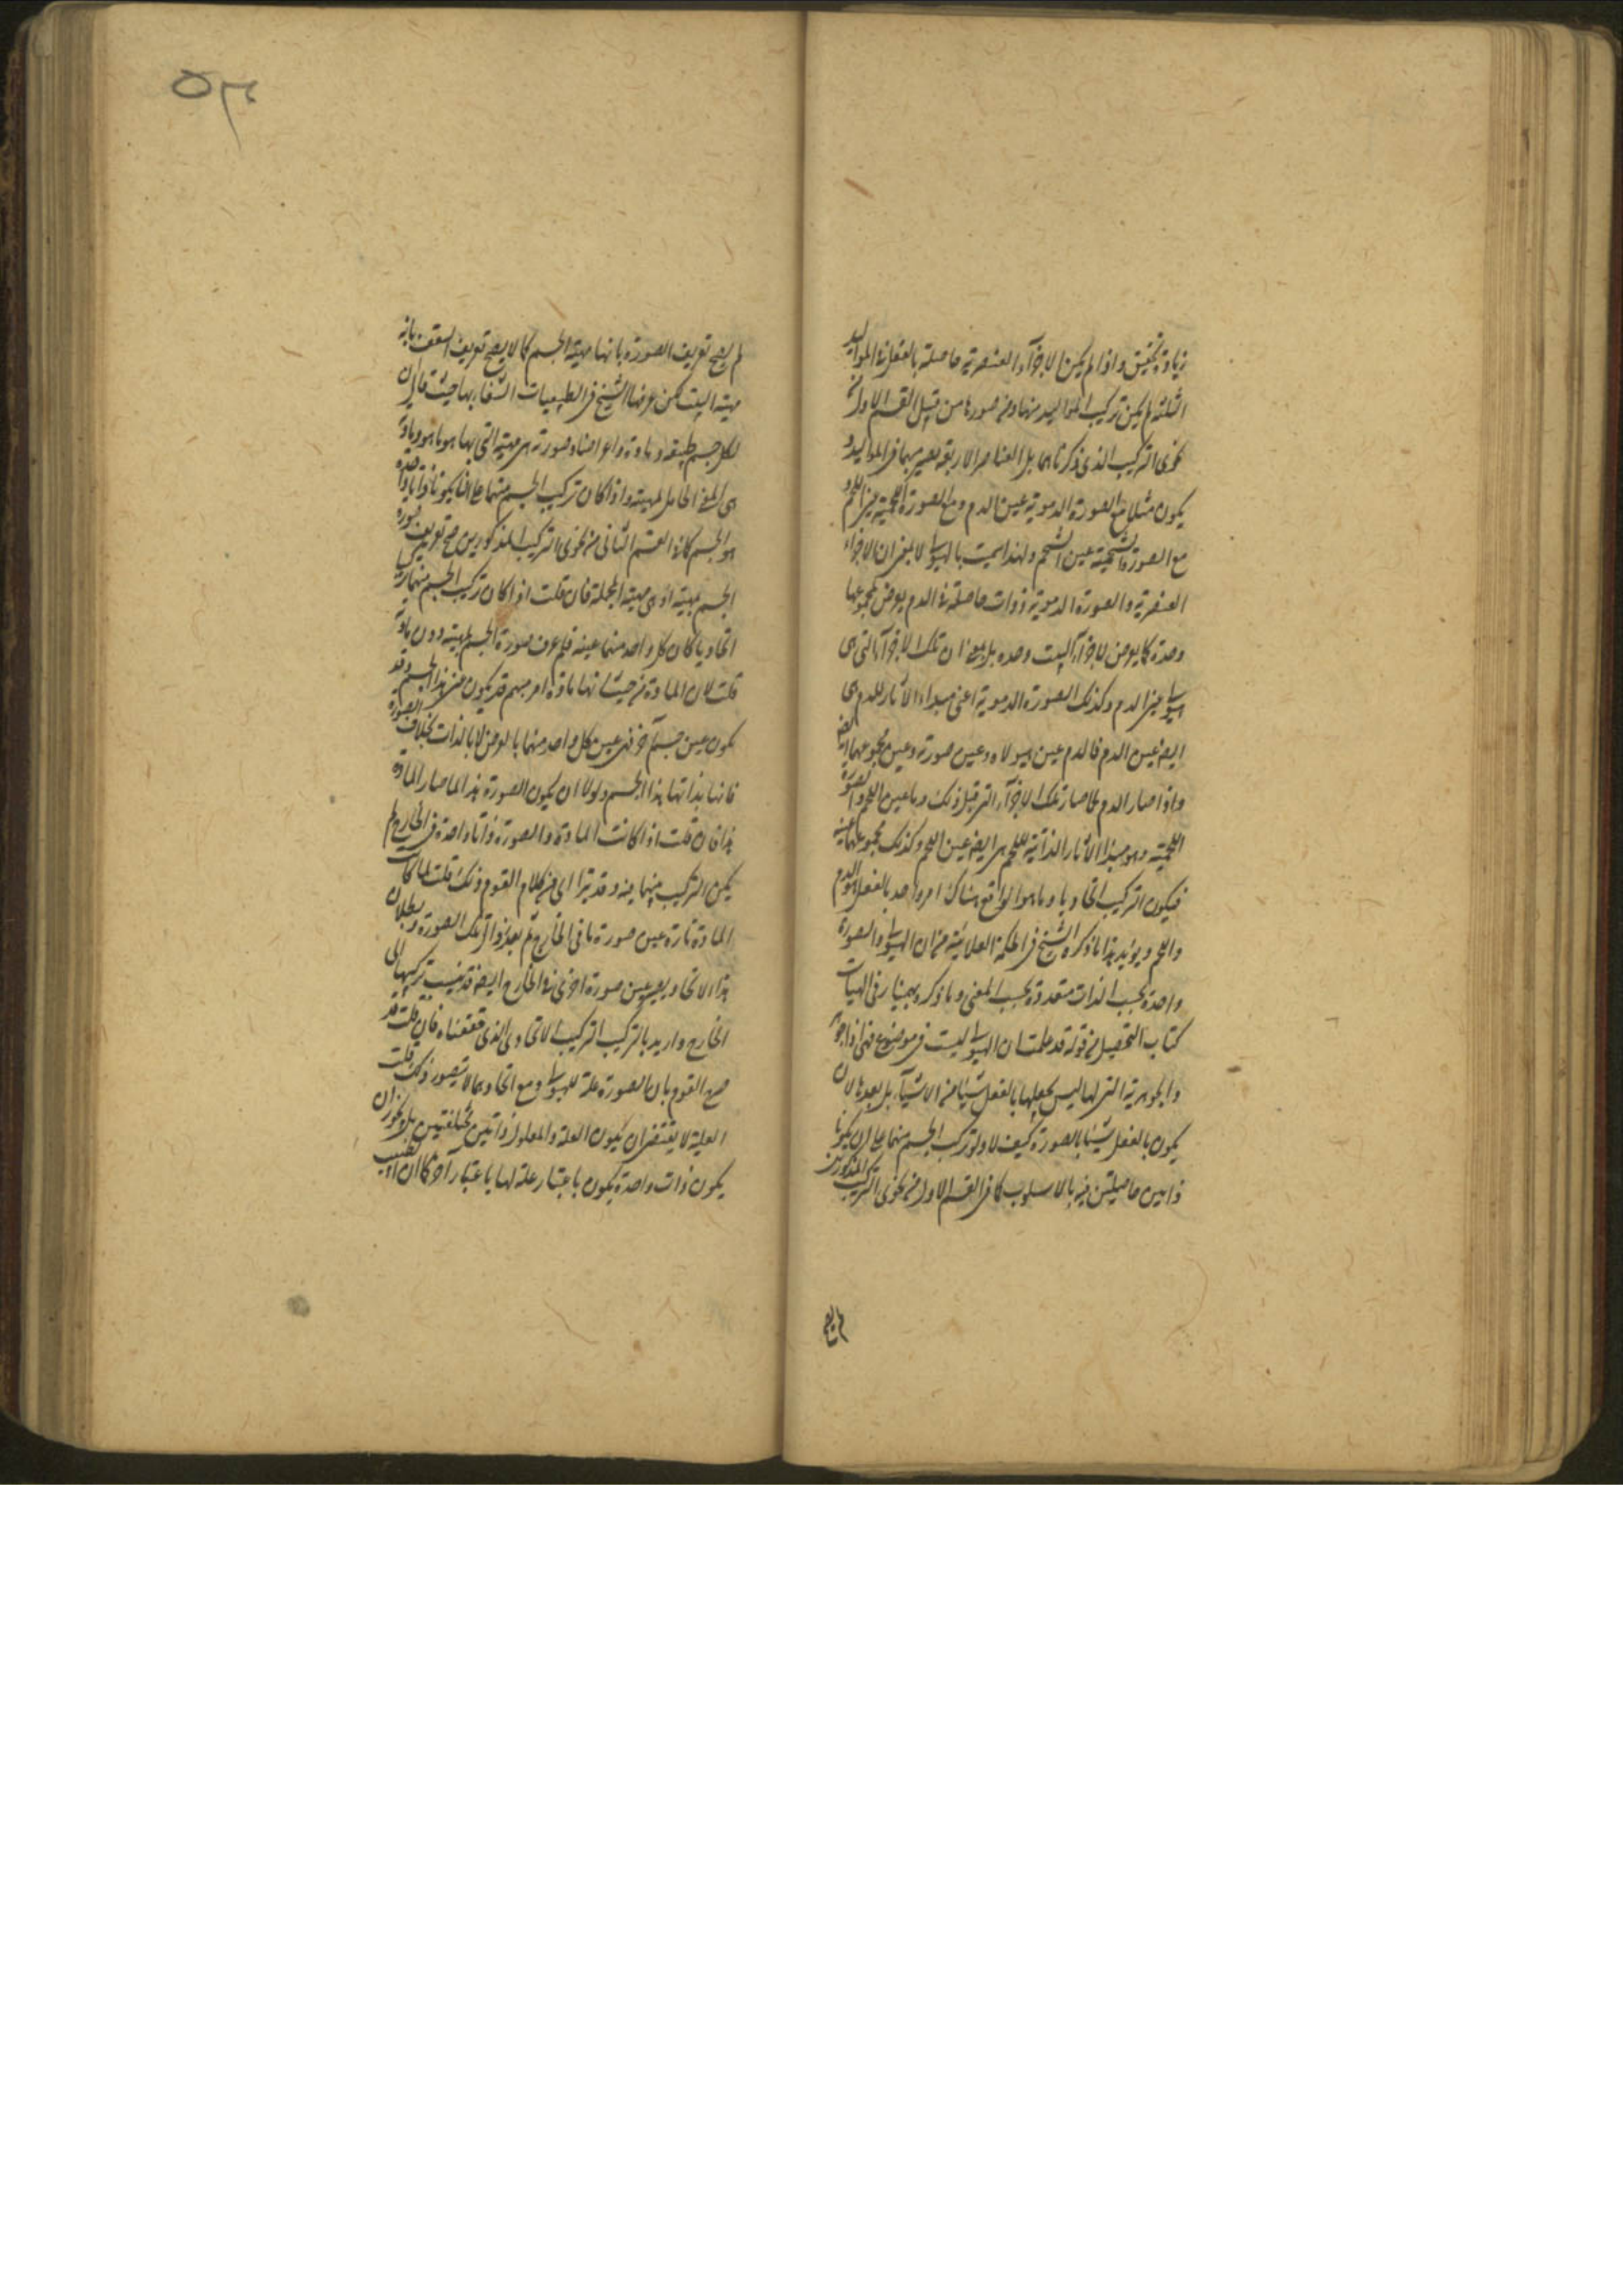 زيادة تحقيق واذا لم يكن الاجزآء العنصرية حاصلة بالفعل في المواليد
الثلثة لم يكن تركيب المواليد منها ومن صورها من قبيل القسم الاول من
نحوى التركيب الذى ذكرناهما بل العناصر الاربعة يصير بها في المواليد و
يكون مثلا مع الصورة الدموية عين الدم ومع الصورة اللحمية عين اللحم و
مع الصورة الشحمية عين الشحم ولهذا سميت بالهيولى لا بمعنى ان الاجزاء
العنصرية والصورة الدموية ذوات حاصلة في الدم يعرض لمجموعها
وحدة كما يعرض لاجزآء البيت وحدة بل بمعنى ان تلك الاجزآء التى هى
هيولى عين الدم وكذلك الصورة الدموية اعنى مبداء الآثار للدم هى
ايضا عين الدم فالدم عين هيولاه وعين صورته وعين مجموعهما ايضا
واذا صار الدم لحما صار تلك الاجزآء التى قبل ذلك دما عين اللحم والصورة
اللحمية وهو مبدا الآثار الذاتية للحم هى ايضا عين اللحم وكذلك مجموعهما عينه
فيكون التركيب اتحاديا وما هو الواقع هناك امر واحد بالفعل هو الدم
واللحم ويؤيد هذا ما ذكره الشيخ في الحكمة العلائية من ان الهيولى والصورة
واحدة بحسب الذات متعددة بحسب المعنى وما ذكره بهمنيار في الهيات
كتاب التحصيل من قوله قد علمت ان الهيولى ليست في موضوع فهى اذا جوهر
والجوهرية التى لها ليس يجعلها بالفعل شيئا من الاشيآء بل يعدها لان
يكون بالفعل شيئا بالصورة كيف لا ولو تركب الجسم منهما على ان يكونا
ذاتين حاصلتين فيه بالاسلوب كما في القسم الاول من نحوى التركيب المذكورين
لم يصح
لم يصح تعريف الصورة بانها مهية الجسم كما لا يصح تعريف السقف بانه
مهية البيت لكن عرفها الشيخ في الطبيعيات الشفاء بها حيث قال ان
لكل جسم طبيعة ومادة واعراضا وصورته هى مهيته التى بها هو ما هو ومادته
هى المعنى الحامل لمهيته واذا كان تركيب الجسم منهما على ان يكونا ذاتا واحدة
هو الجسم كما في القسم الثانى من نحوى التركيب المذكورين صح تعريف صورة
الجسم بمهيته اذ هى مهية الجملة فان قلت اذا كان تركيب الجسم منهما تركيبا
اتحاديا كان كل واحد منهما عينه فلم عرف صورة الجسم بمهيته دون مادته
قلت لان المادة من حيث انها مادة امر مبهم قد يكون عين هذا الجسم وقد
يكون عين جسم آخر فهى عين كل واحد منهما بالعرض لا بالذات بخلاف الصورة
فانها بذاتها هذا الجسم ولولا ان يكون الصورة هذا لما صار المادة
هذا فان قلت اذا كانت المادة والصورة ذاتا واحدة في الخارج لم
يكن التركيب منهما فيه وقد يترا اى من كلام القوم ذلك قلت لما كانت
المادة تارة عين صورة ما في الخارج ثم بعد زوال تلك الصورة وبطلان
هذا الاتحاد يصير عين صورة اخرى في الخارج ايضا قد ينسب تركيبها الى
الخارج واريد بالتركيب التركيب الاتحادى الذى حققناه فان قلت قد
صرح القوم بان الصورة علة للهيولى ومع اتحادهما لا يتصور ذلك قلت
العلية لا يقتضى ان يكون العلة والمعلول ذاتين مختلفتين بل يجوز ان
يكون ذات واحدة يكون باعتبار علة لها باعتبار آخر كما ان الطبيب